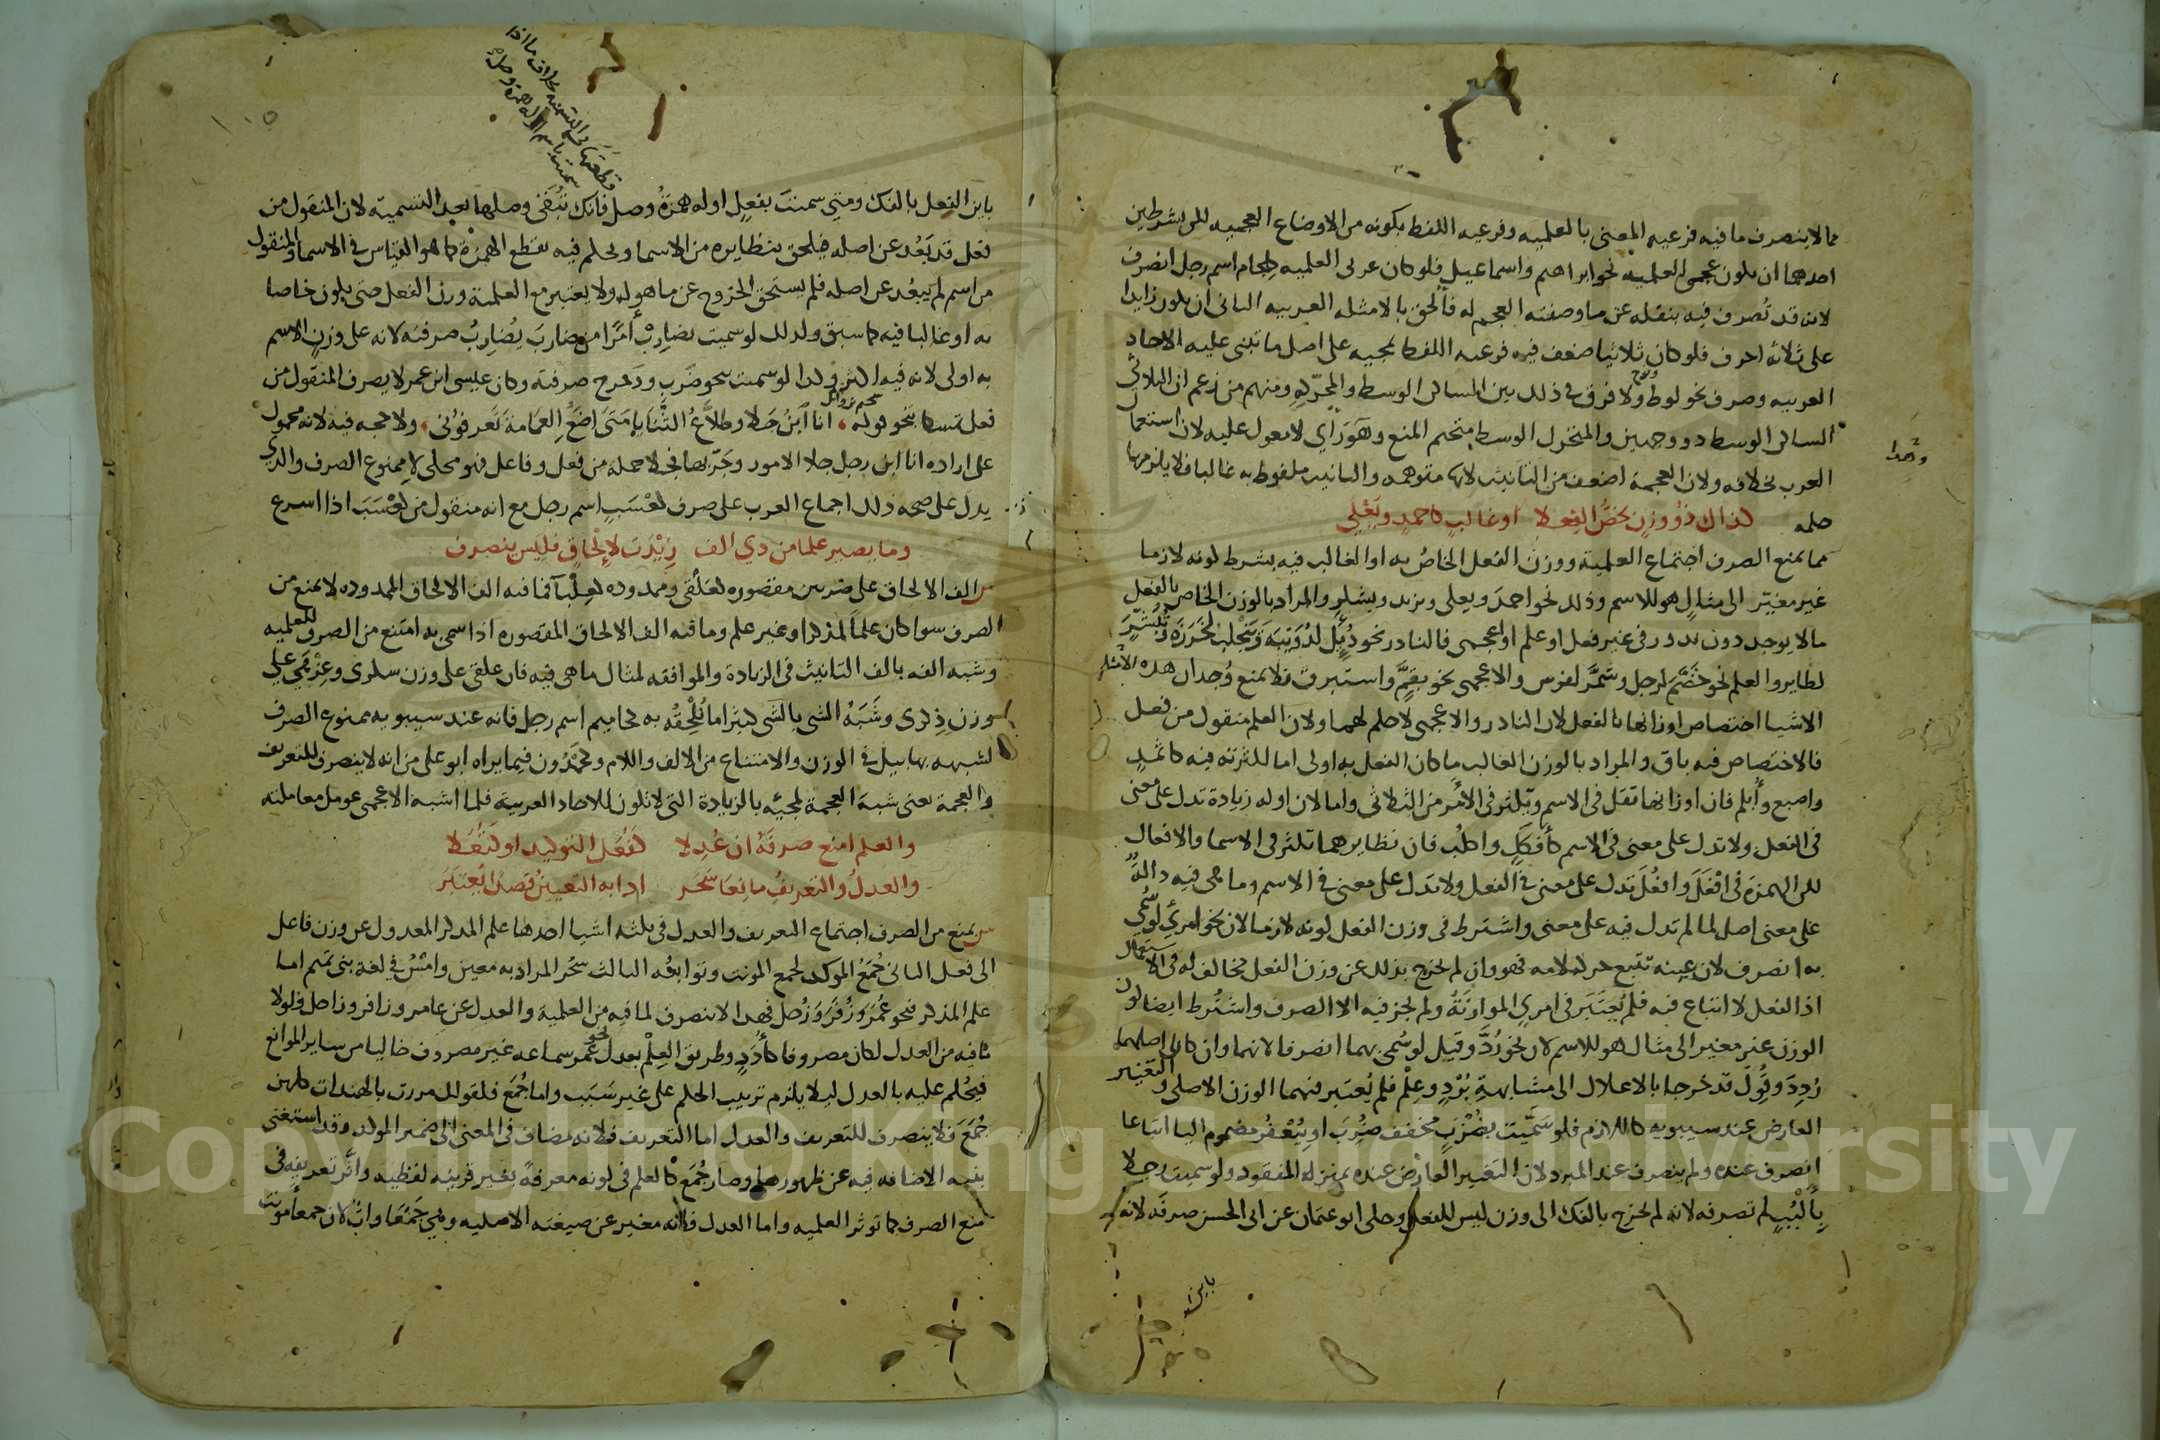 مما لا ينصرف ما فيه فرعية المعنى بالعلمية وفرعية اللفظ بكونه من الاوضاع العجمية لكن بشرطين
احدهما ان يكون عجمي العلمية نحو ابراهيم واسماعيل فلو كان عربي العلمية كلجام اسم رجل انصرف
لانه قد تُصرف فيه بنقله عن ما وضعته العجم له فألحق بالامثلة العربية الثاني ان يكون زايدا
على ثلاثة احرف فلو كان ثلاثيا ضعف فيه فرعية اللفظ لمجيه على اصل ما تبنى عليه الاحاد
العربية وصرف نحو لوط ونوح ولا فرق في ذلك بين الساكن الوسط والمحرّكه ومنهم من زعم ان الثلاثي
الساكن الوسط ذو وجهين والمتحرك الوسط متحتم المنع وهو رَأي لا معول عليه لان استعمال
العرب بخلافه ولان العجمة اضعف من التانيث لانها متوهمة والتانيث ملفوظ به غالبا فلا يلزمها
حكمه كذاك ذُو وزنٍ يَخُصُّ الفِعلا اوغالبٍ كأحمدٍ ويَعْلى
مما يمنع الصرف اجتماع العلمية ووزن الفعل الخاصُ به او الغالب فيه بشرط كونه لازما
غير مغيّر الى مثالٍ هو للاسم وذلك نحو احمدَ ويعلى ويزيد ويشكر والمراد بالوزن الخاص بالفعل
ما لا يوجد دون ندور في غير فعل او علم او اعجمي فالنادر نحو دُئِل لدُوَيْبة ويَنْجَلِب لخَرَزة وتُبُشِّر
لطاير والعلم نحو خَضَّم لرجل وشمَّر لفرس والاعجمي نحو بقَّمٍ واستبرق فلا يمنع وُجدان هذه الامثلة
الاشيا اختصاص اوزانها بالفعل لان النادر والاعجمي لا حكم لهما ولان العلم منقول من فعل
فالاختصاص فيه باق والمراد بالوزن الغالب ما كان الفعل به اولى اما لكثرته فيه كاثمدٍ
واصبع وأُبلم فان اوزانها تقل في الاسم وتكثر في الأمر من الثلاثي واما لان اوله زيادة تدل على معنى
في الفعل ولا تدل على معنى في الاسم كأفكَلٍ واكلُب فان نظايرهما تكثر في الاسما والافعال
لكن الهمزة في افْعَلَ وافعُلَ تدل على معنى في الفعل ولا تدل على معنى في الاسم وما هي فيه دالة
على معنى اصل لما لم تدل فيه على معنى واشترط في وزن الفعل كونه لازما لان نحو امرئٍ لو سُمي
به انصرف لان عينه تتبع حركة لامه فهو وان لم يخرج بذلك عن وزن الفعل مخالف له في الاستعمال
اذ الفعل لا اتباع فيه فلم يُعتبَر في امرئٍ الموازنَةُ ولم يجز فيه الا الصرف واشتُرط ايضا كون
الوزن غير مغير الى مثال هو للاسم لان نحو رُدَّ وقيل لو سُمي بهما انصرفا لانهما وان كان اصلهما
رُدِدَ وقُوِلَ قد خرجا بالاعلال الى مشابهة بُرْدٍ وعِلْمٍ فلم يُعتبَر فيهما الوزن الاصلي والتغيير
العارض عند سيبويه كاللازم فلو سَمَّيت بضُرْبٍ مُخفف ضُرِبَ او يُعْفُر مضموم اليا اتباعا
انصرف عنده ولم ينصرف عند المبرد لان التغيير العارض عنده بمنزلة المفقود ولو سميت رجلا
بِأَلْبُبٍ لم تصرفه لانه لم يخرج بالفك الى وزن ليس للفعل وحكى ابو عثمان عن ابي الحسن صرفه لانه
باين
باين الفعل بالفك ومتى سميتَ بفعلٍ اوله همزةُ وصل فانك تُبْقي وصلها بعد التسمية لان المنقول من
فعل قد بَعُد عن اصله فيلحق بنظايره من الاسما ويحكم فيه بقطع الهمزة كما هو القياس في الاسما والمنقول
من اسم لم يَبعُد عن اصله فلم يستحق الخروج عن ما هو له ولا يعتبر مع العلمية وزن الفعل حتى يكون خاصا
به او غالبا فيه كما سبق ولذلك لو سميت بضارِبْ أمْرًا من ضاربَ يُضارِبُ صرفته لانه على وزنٍ الاسم
به اولى لانه فيه اكثر وكذا لو سميت بنحو ضَرَبَ ودَحرج صرفته وكان عيسى ابن عمر لا يصرف المنقول من
فعل تمسكا بنحو قوله انا ابْنُ جَلا وطَلَّاعُ الثنايا مَتَى أضَعُ العِمَامةَ تَعرفُوني ولا حجه فيه لانه محمول
على ارادة انا ابن رجل جلا الامور وجَرّبها فجلا جملة من فعل وفاعل فهو محكي لا ممنوع الصرف والذي
يدل على صحة ذلك اجماع العرب على صرف كَعْسَبٍ اسم رجل مع انه منقول من كَعْسَبَ اذا اسرع
وما يصير علما من ذي الف زِيْدَتْ لإلْحاقٍ فليس ينصرف
الف الالحاق على ضربين مقصوره كعَلْقى وممدوده كعِلْباء فما فيه الف الالحاق الممدوده لا يمنع من
الصرف سوا كان علماً لمذكر او غير علم وما فيه الف الالحاق المقصوره اذا سمي به امتنع من الصرف للعلمية
وشبه الفه بالف التانيث في الزيادة والموافقه لمثال ما هي فيه فان علقى على وزن سكرى وعِزْهى على
وزن ذِكرى وشَبَهُ الشي بالشي كثيرا ما يُلْحِقُه به كحاميم اسم رجل فانه عند سيبويه ممنوع الصرف
لشبهه بهابيل في الوزن والامتناع من الالف واللام وكحمدُون فيما يراه ابو علي من انه لا ينصرف للتعريف
والعجمة يعنى شبه العجمة لمجيئه بالزيادة التي لا تكون للاحاد العربية فلما اشبه الاعجمي عومل معاملته
والعلم امنع صرفَهُ ان عُدِلا كفُعَلِ التوكيد او كثُعَلا
والعدلُ والتعريفُ مانِعَا سَحَر اذا به التعيينُ قصداً يُعتبَر
يمنع من الصرف اجتماع التعريف والعدل في ثلثة اشيا احدها علم المذكر المعدول عن وزن فاعل
الى فعل الثاني جُمَعُ الموكد لجمع المونث وتوابعُه الثالث سحَر المراد به معين وامْسُ في لغة بني تميم اما
علم المذكر فنحو عُمَرَ وَزُفَرَ وَزُحَل فهذا لا ينصرف لما فيه من العلمية والعدل عن عامر وزافر وزاحل ولولا
ما فيه من العدل لكان مصروفا كأُدَدٍ وطريق العِلْم بعدل نحو عُمَر سماعه غير مصروف خاليا من ساير الموانع
فيُحكم عليه بالعدل ليلا يلزم ترتيب الحكم على غير سَبَب واما جُمَع فلقولك مررت بالهندات كلهن
جُمَعَ فلا ينصرف للتعريف والعدل اما التعريف فلانه مضاف في المعنى الى ضمير الموكد وقد استغنى
بنية الاضافه فيه عن ظهورها وصار جُمَع كالعلم في كونه معرفةً بغير قرينه لفظيه واثَّر تعريفه في
منع الصرف كما توثر العلميه واما العدل فلانه مغير عن صيغته الاصليه وهي جَمْعَاوات لان جمعاء مونث
Copyright © King Saud University